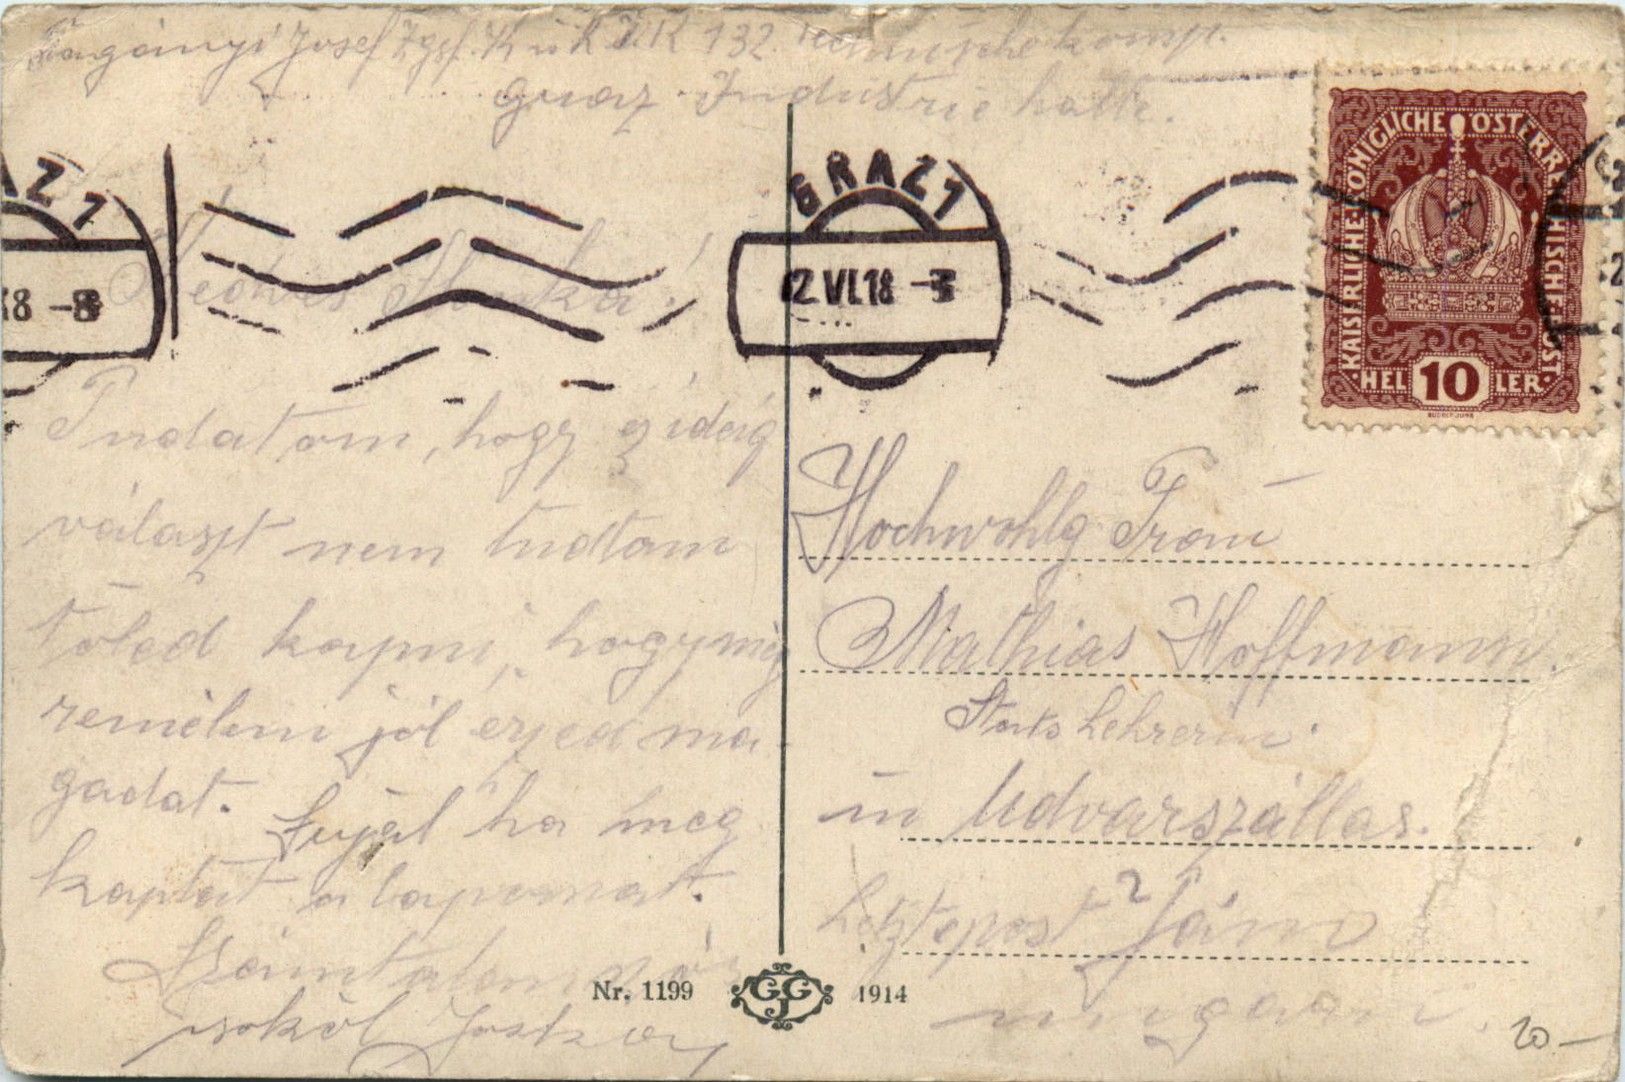 Josef Zgsf. K u K I.R 132. Technische komp.
Graz Industriehalle.
GRAZ 1
18 -8
GRAZ 1
2 VI.18 -8
KAISERLICHE KÖNIGLICHE ÖSTERREICHISCHE POST
HELLER
10
Kedves
Tudatom, hogy ez ideig
választ nem tudtam
tőled kapni, hogymig
remélem jól érzed ma-
gadat. ha meg
kaptad a lapomat.
Számtalan
csókol Joska
Hochwohlg Frau
Mathias Hoffmann
Staats Lehrerin.
in Udvarszállas.
Letztepost Jám
ungarn.
Nr. 1199
GGJ
1914
20-